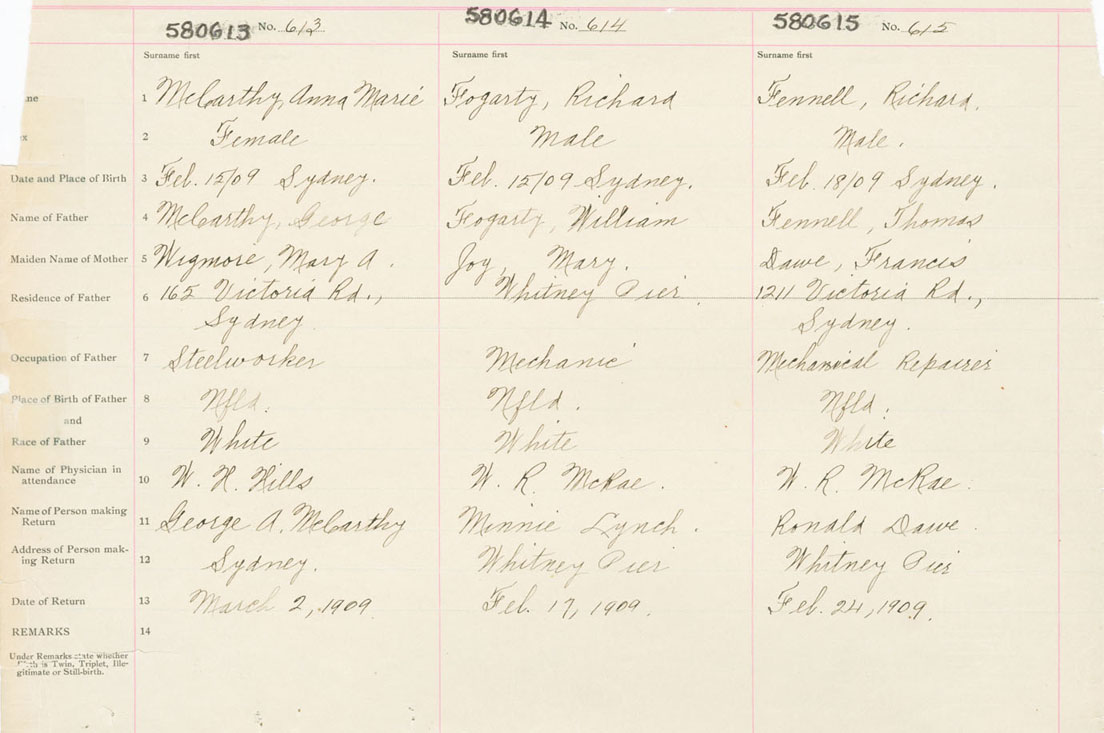 580613 No. 613 580614 No. 614 580615 No. 615
Surname first Surname first Surname first
me 1 McCarthy, Anna Marie Fogarty, Richard Fennell, Richard.
x 2 Female Male Male.
Date and Place of Birth 3 Feb. 15/09 Sydney. Feb. 15/09 Sydney. Feb. 18/09 Sydney.
Name of Father 4 McCarthy, George Fogarty, William Fennell, Thomas
Maiden Name of Mother 5 Wigmore, Mary A. Joy, Mary. Dawe, Francis
Residence of Father 6 165 Victoria Rd., Whitney Pier. 1211 Victoria Rd.,
Sydney. Sydney.
Occupation of Father 7 Steelworker Mechanic Mechanical Repairer
Place of Birth of Father 8 Nfld. Nfld. Nfld.
and
Race of Father 9 White White White
Name of Physician in
attendance 10 W. H. Hills W. R. McRae. W. R. McRae.
Name of Person making
Return 11 George A. McCarthy Minnie Lynch. Ronald Dawe.
Address of Person mak-
ing Return 12 Sydney. Whitney Pier Whitney Pier
Date of Return 13 March 2, 1909 Feb. 17, 1909. Feb. 24, 1909.
REMARKS 14
Under Remarks state whether
is Twin, Triplet, Ille-
gitimate or Still-birth.